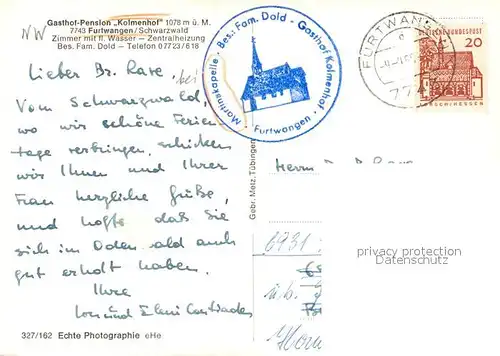 NW
Gasthof-Pension „Kolmenhof" 1078 m ü. M.
7743 Furtwangen/Schwarzwald
Zimmer mit fl. Wasser – Zentralheizung
Bes. Fam. Dold – Telefon 07723/618
Martinskapelle · Bes: Fam. Dold · Gasthof Kolmenhof ·
Furtwangen
FURTWANGEN
DEUTSCHE BUNDESPOST
20
LORSCH/HESSEN
Lieber Br. Rave,
Vom Schwarzwald,
wo wir schöne Ferien-
tage verbringen, schicken
wir Ihnen und Ihrer
Frau herzliche Grüße,
und hoffe daß Sie
sich im Odenwald auch
gut erholt haben.
Ihre
und
Herrn
6931
privacy protection
Datenschutz
Gebr. Metz, Tübingen
327/162 Echte Photographie eHe